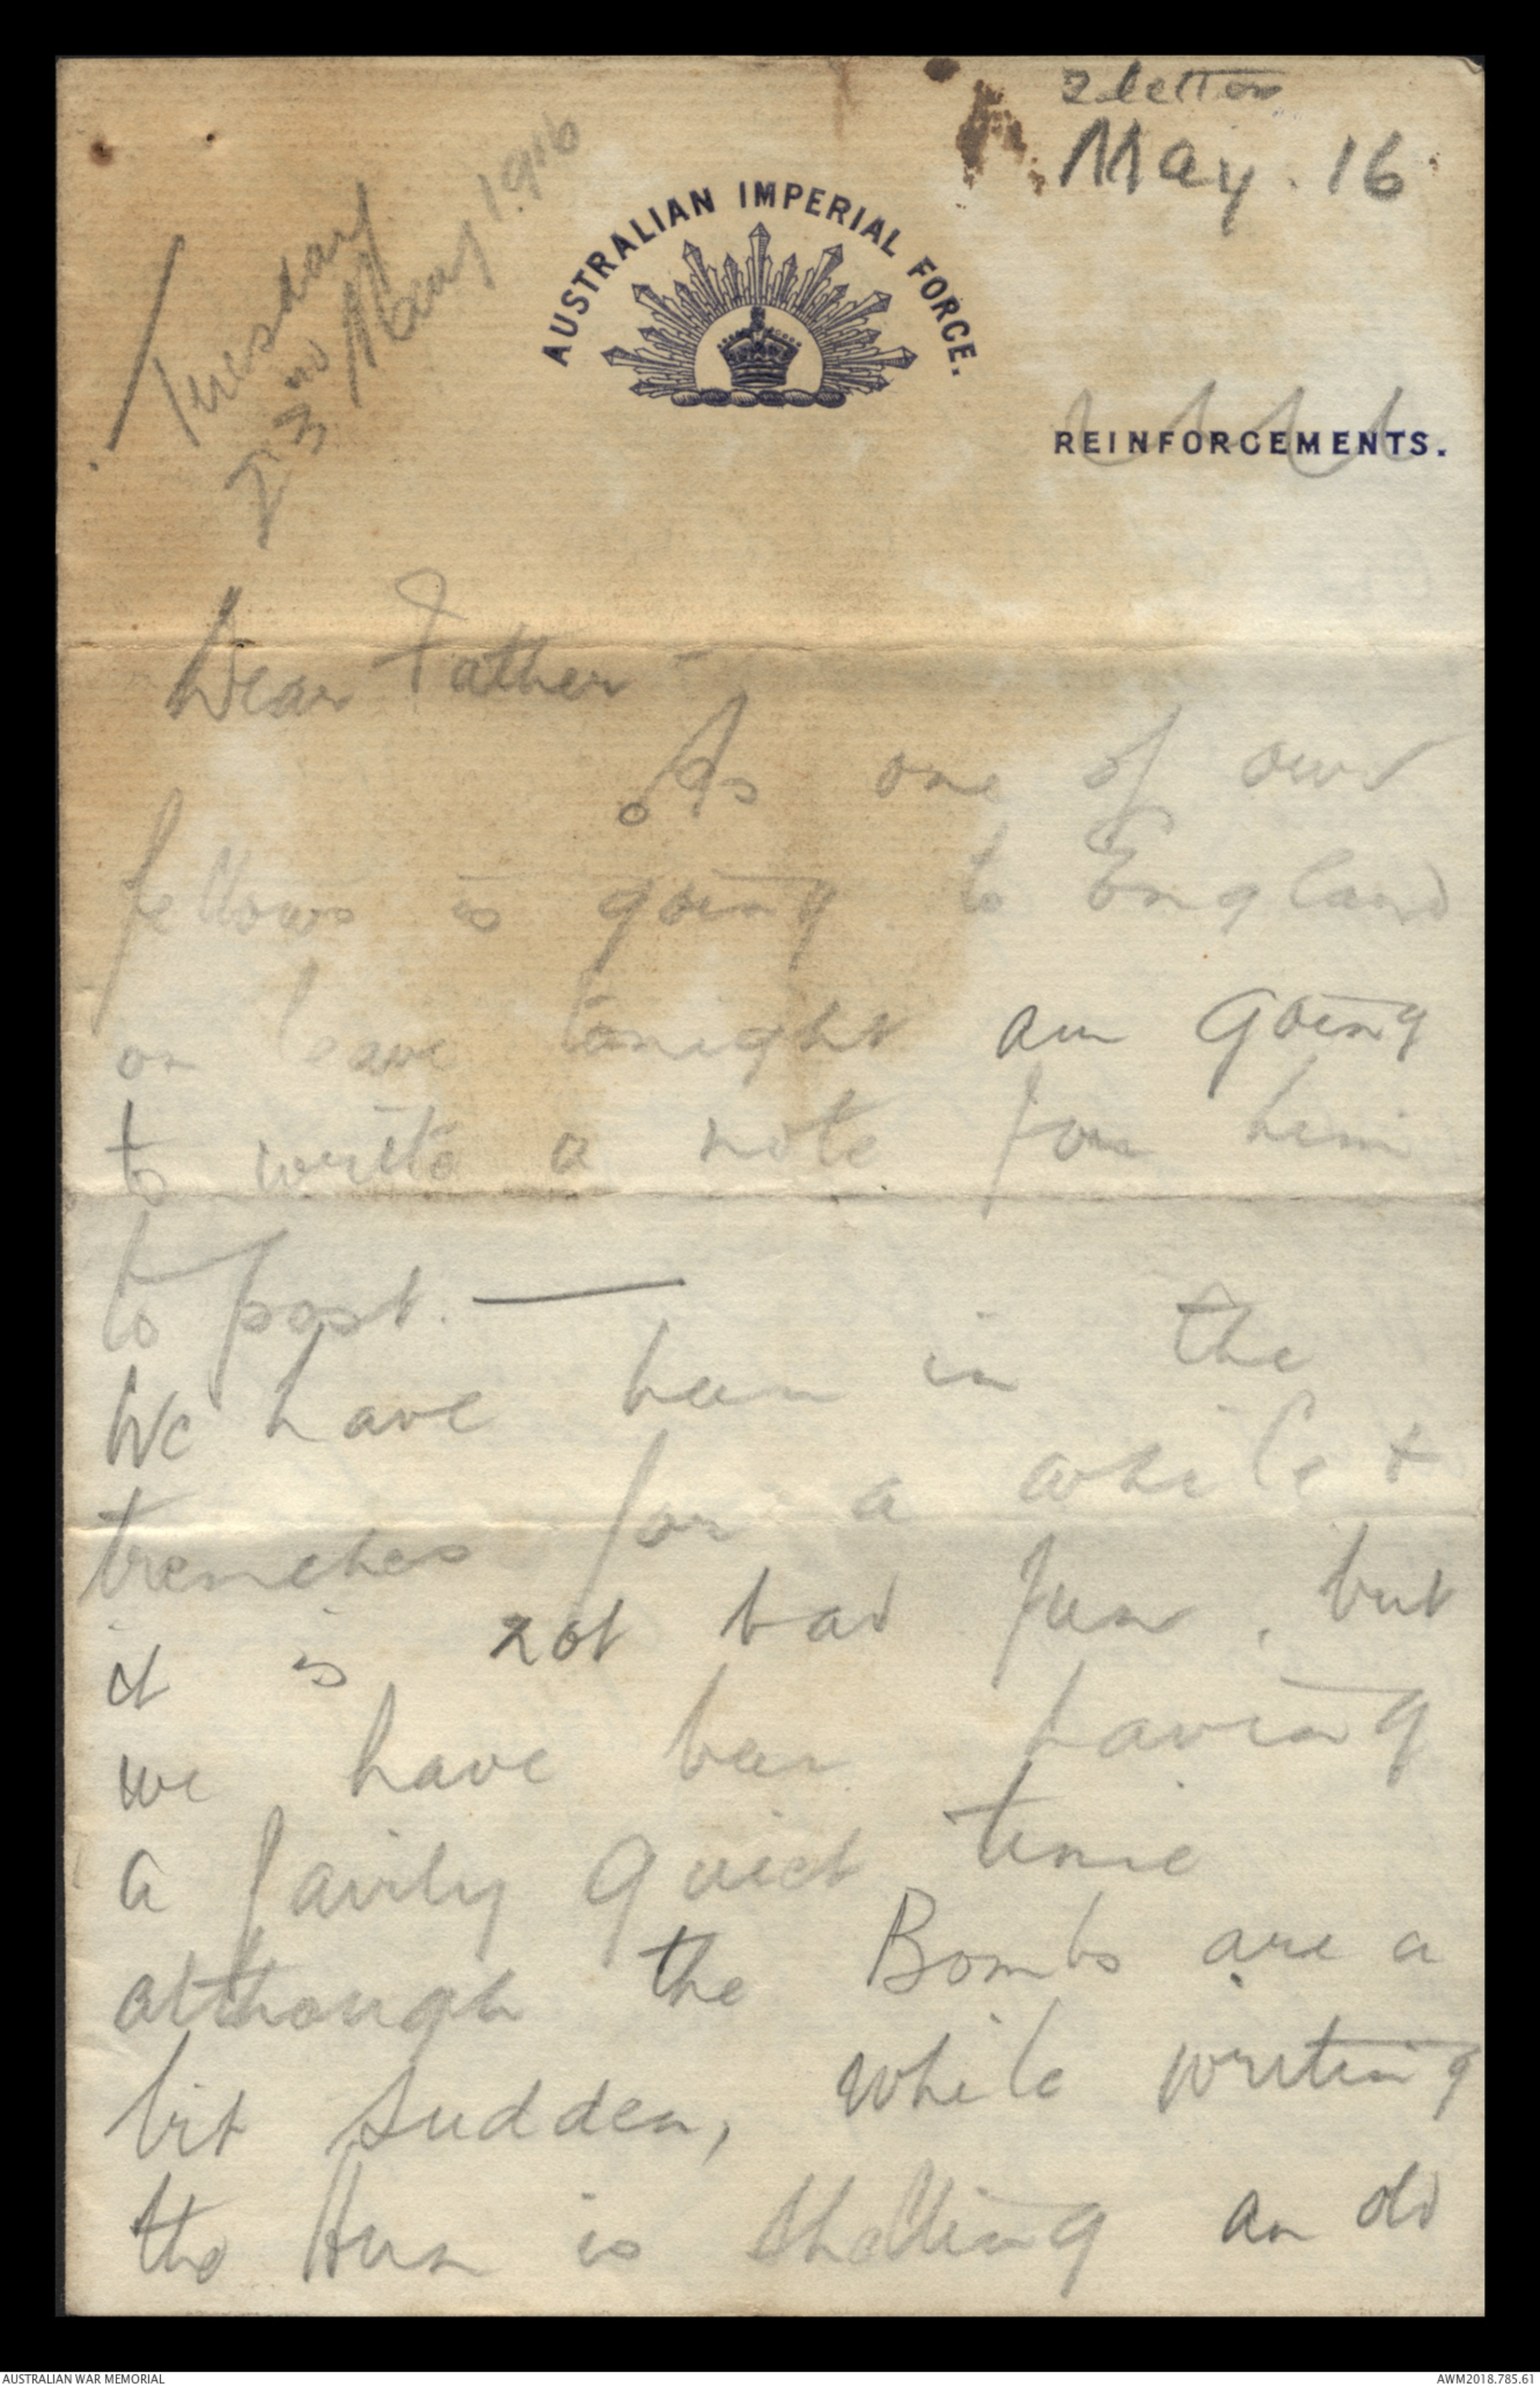 2 letters
May. 16.
Tuesday
23rd May 1916
AUSTRALIAN IMPERIAL FORCE.
REINFORCEMENTS.
Dear Father -
As one of our
fellows is going to England
on leave tonight am going
to write a note for him
to post. —
We have been in the
trenches for a while +
it is not bad fun, but
we have been having
a fairly quiet time
although the Bombs are a
bit sudden, while writing
the Hun is shelling an old
AUSTRALIAN WAR MEMORIAL
AWM2018.785.61